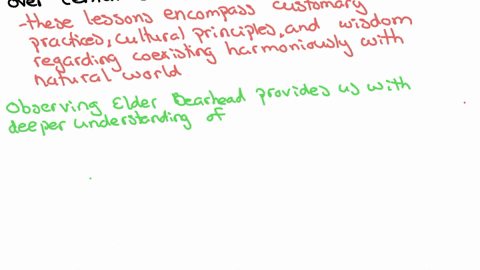 over
-these lessons encompass customary
practices, cultural principles, and wisdom
regarding coexisting harmoniously with
natural world
Observing Elder Bearhead provides us with
deeper understanding of